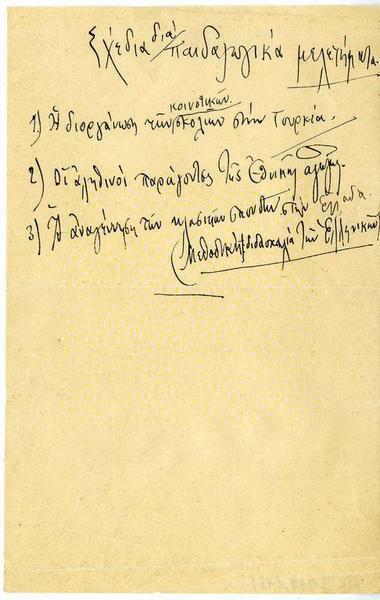 Σχέδια διὰ παιδαγωγικὰ μελετήματα.
κοινοτικῶν
1) Ἡ διοργάνωση τῶν σκολιῶν στὴν Τουρκία.
2) Οἱ ἀληθινοὶ παράγοντες τῆς ἐθνικῆς ἀγωγῆς.
3) Ἡ ἀναγέννηση τῶν κλασικῶν σπουδῶν στὴν Ἑλλάδα.
(Μεθοδικὴ διδασκαλία τῶν Ἑλληνικῶν